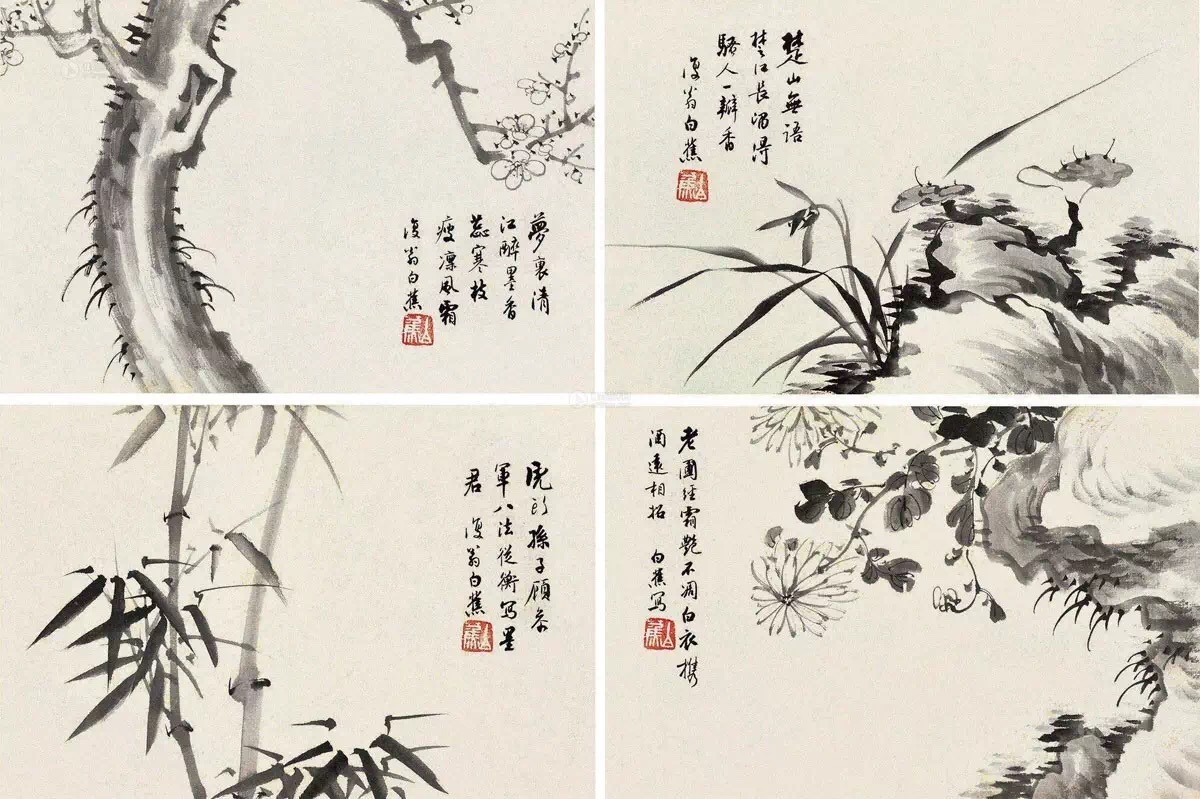 夢裏清
江醉墨香
蕊寒枝
瘦凛風霜
復翁白蕉
白蕉
楚山無語
楚江長留得
騷人一瓣香
復翁白蕉
白蕉
孫子顧參
軍八法從衡寫墨
君 復翁白蕉
白蕉
老圃經霜艷不凋白衣攜
酒遠相招 白蕉寫
白蕉